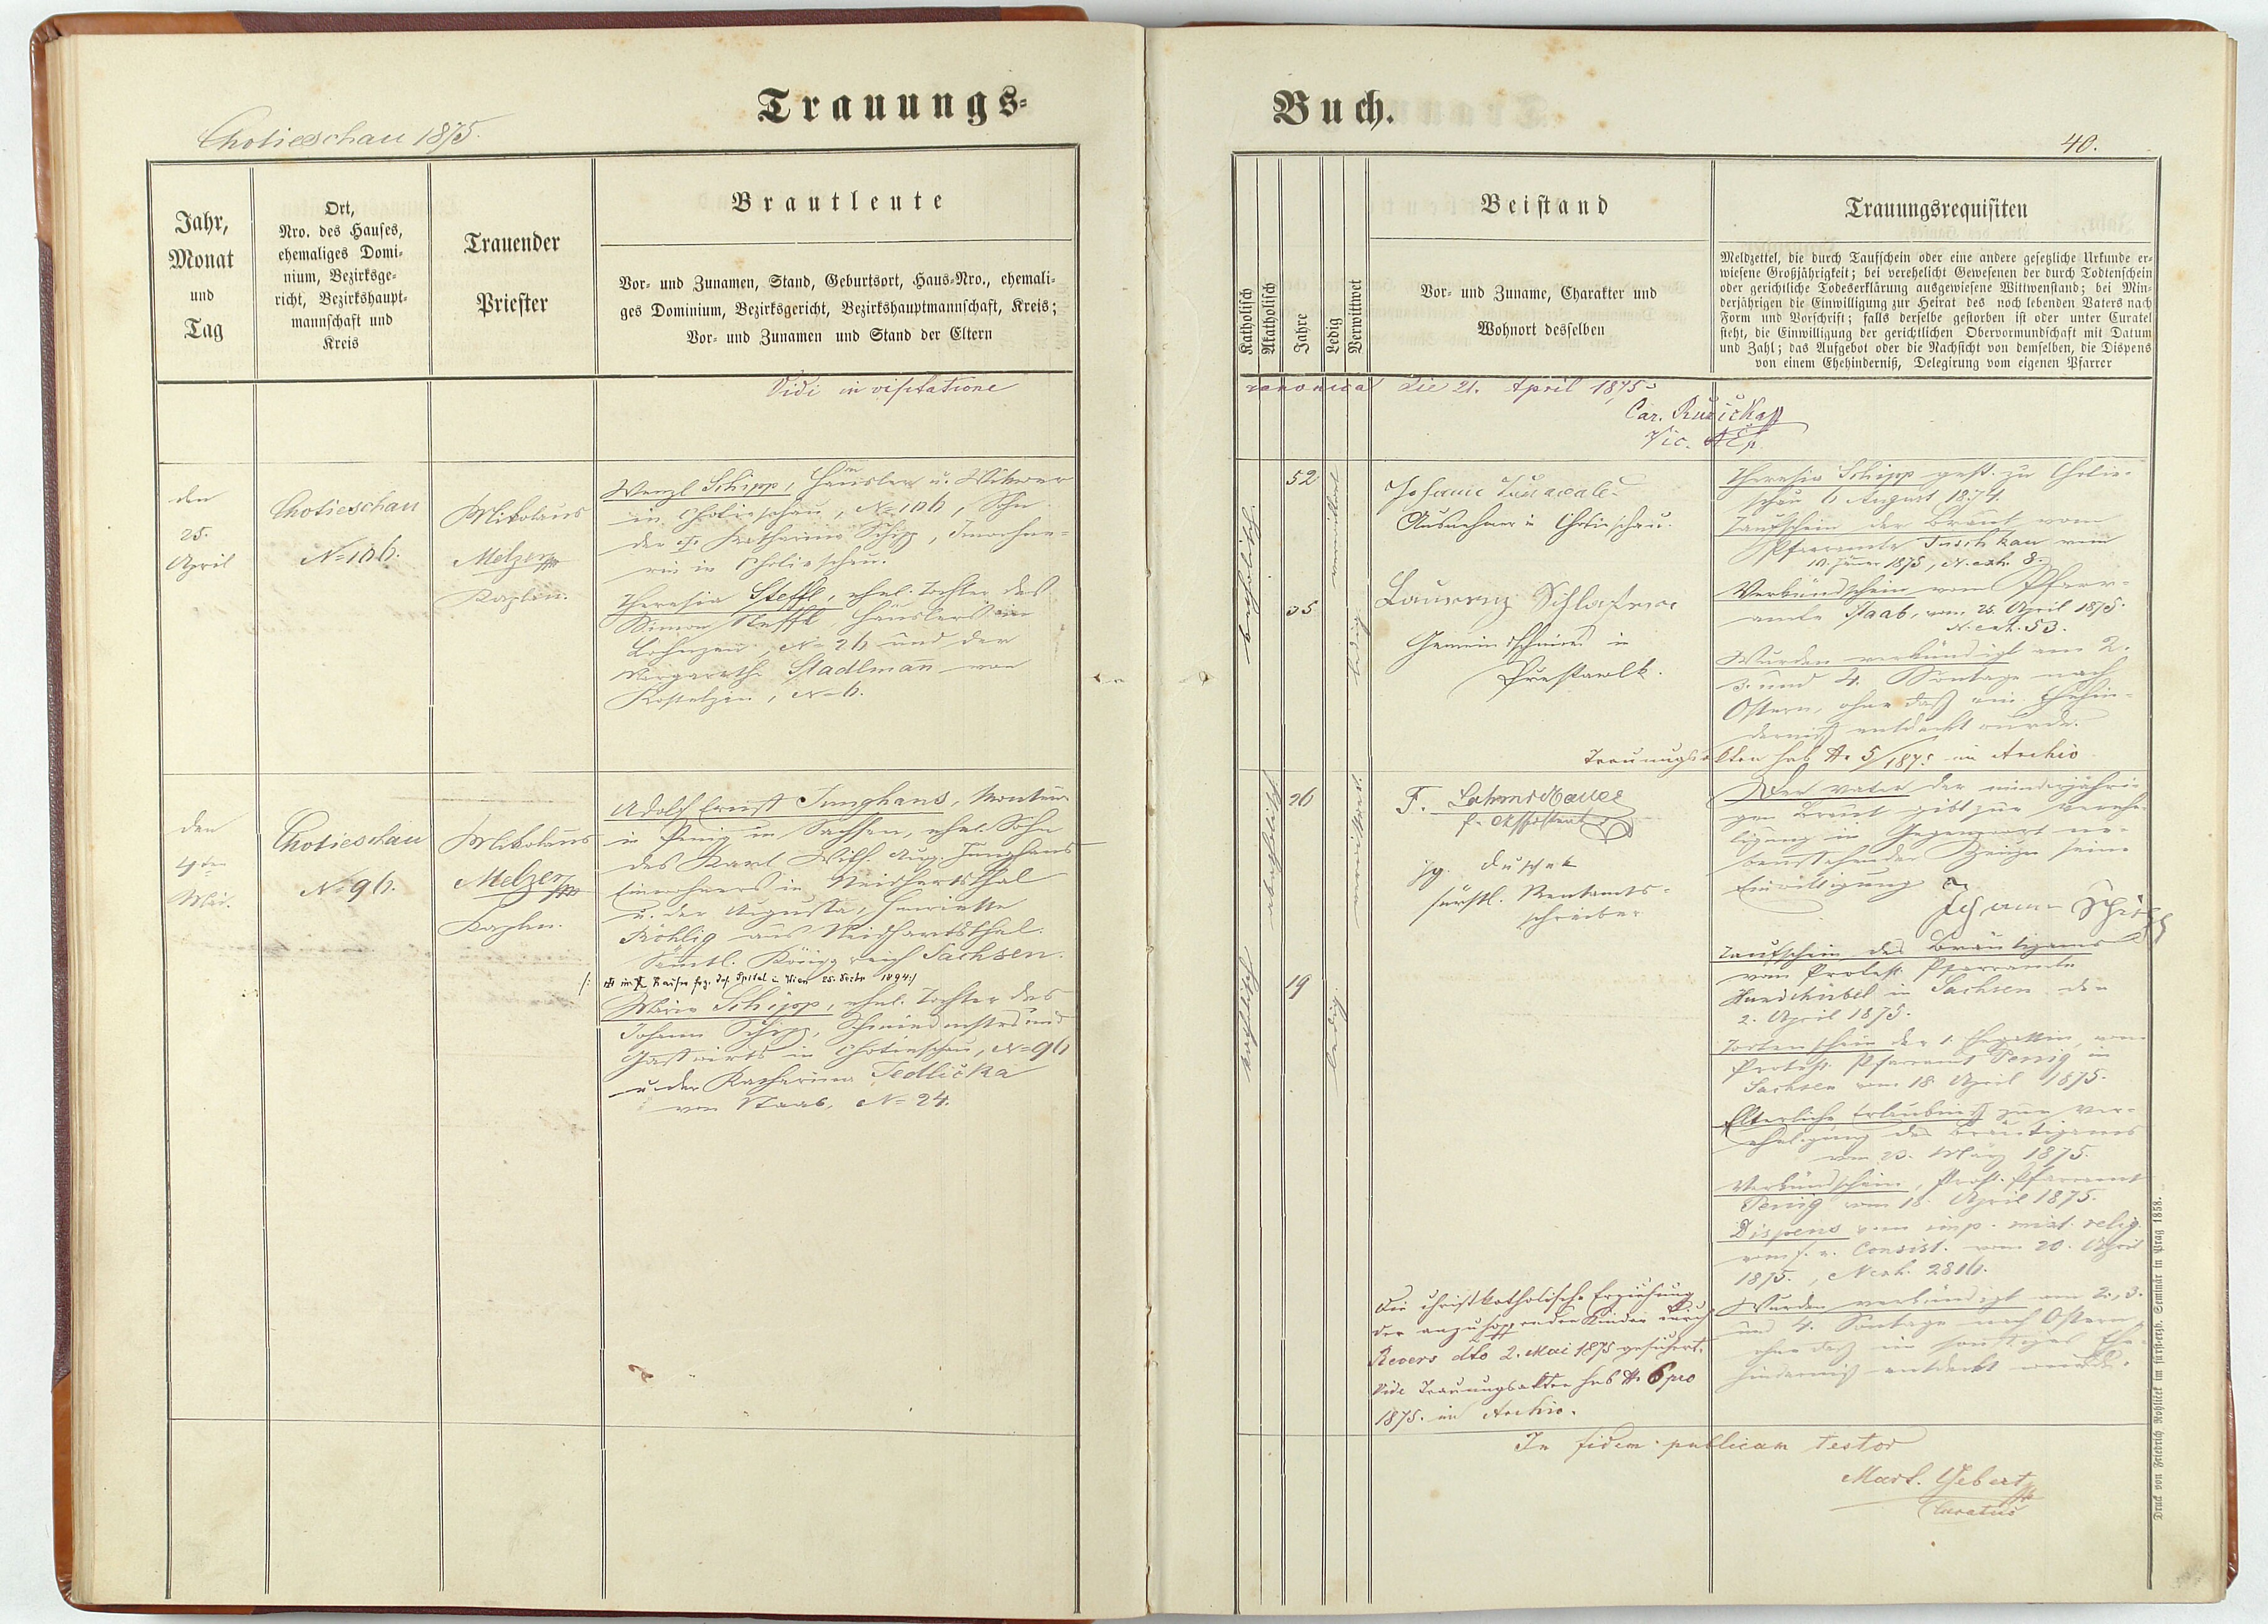 Trauungs-
Chotieschau 1875.
Jahr,
Monat
und
Tag
Ort,
Nro. des Hauses,
ehemaliges Domi-
nium, Bezirksge-
richt, Bezirkshaupt-
mannschaft und
Kreis
Trauender
Priester
Brautleute
Vor- und Zunamen, Stand, Geburtsort, Haus-Nro., ehemali-
ges Dominium, Bezirksgericht, Bezirkshauptmannschaft, Kreis;
Vor- und Zunamen und Stand der Eltern
Vidi in visitatione
den
25.
April
Chotieschau
N=106.
Mikolaus
Melzer
Kaplan.
Wenzl Schipp, Häusler u. Witwer
in Chotieschau, N=106, Sohn
der Katharina Schipp, Inwohne-
rin in Chotieschau.
Theresia Steffl, ehel. Tochter des
Simon Steffl, Häuslers in
N=26 und der
Margareth Stadlmann von
N=6.
den
4ten
Mai.
Chotieschau
N=96.
Mikolaus
Melzer
Kaplan.
Adolf Ernst Junghans,
in Penig in Sachsen, ehel. Sohn
des Karl Wilh. Aug. Junghans
Einwohners in Neidhartsthal
u. der Augusta, Henriette
aus Neidhartsthal.
Sämtl. Königreich Sachsen.
Spital in Wien 25. 1894
Maria Schipp, ehel. Tochter des
Johann Schipp, Schmiedmstrs und
Gastwirts in Chotieschau, N=96
u. der Katharina Jedlička
von Staab, N=24.
Buch.
40.
Katholisch
Akatholisch
Jahre
Ledig
Verwittwet
Beistand
Vor- und Zuname, Charakter und
Wohnort desselben
Trauungsrequisiten
Meldzettel, die durch Taufschein oder eine andere gesetzliche Urkunde er-
wiesene Großjährigkeit; bei verehelicht Gewesenen der durch Todtenschein
oder gerichtliche Todeserklärung ausgewiesene Wittwenstand; bei Min-
derjährigen die Einwilligung zur Heirat des noch lebenden Vaters nach
Form und Vorschrift; falls derselbe gestorben ist oder unter Curatel
steht, die Einwilligung der gerichtlichen Obervormundschaft mit Datum
und Zahl; das Aufgebot oder die Nachsicht von demselben, die Dispens
von einem Ehehinderniß, Delegirung vom eigenen Pfarrer
canonica die 21. April 1875
Car. Růžička
Vic.
katholisch
52
verwittwet
35
ledig
Johann
Ausnehmer in Chotieschau.
Laurenz
in
Theresia Schipp gest. zu Chotie-
schau 6 August 1874.
Taufschein der Braut vom
Pfarramte Tuschkau vom
10. Jänner 1875, N. exh. 8.
Verkündschein vom Pfarr-
amte Staab, vom 25. April 1875.
N. exh. 53.
Wurden verkündigt am 2.
3. und 4. Sontage nach
Ostern, ohne daß ein Ehehin-
derniß entdeckt wurde.
Trauungsakten sub N. 5/1875 im Archiv
akatholisch
26
verwittwet
katholisch
19
ledig
F.
fürstl. Rentamts-
schreiber
Der Vater der minderjähri-
gen Braut gibt zur Vereheli-
gung in Gegenwart ne-
benstehender Zeugen seine
Einwilligung
Johann Schipp
Taufschein des Bräutigams
vom Protest. Pfarramte
Hundshübel in Sachsen den
2. April 1875.
Todtenschein der 1. Ehegattin, vom
Protest. Pfarramt Penig in
Sachsen vom 18. April 1875.
Elterliche Erlaubniß zur Ver-
eheligung des Bräutigams
vom 23. März 1875.
Verkündschein, Prost. Pfarramt
Penig vom 18. April 1875.
Dispens vom imp. mixt. relig.
vom f. e. Consist. vom 20. April
1875., N exh. 2816.
Wurden verkündigt am 2., 3.
und 4. Sontage nach Ostern,
ohne daß ein sonstiges Ehe-
hinderniß entdeckt wurde.
Die christkatholische Erziehung
der anzuhoffenden Kinder durch
Revers dto 2. Mai 1875 gesichert.
Vide Trauungsakten sub N. 6 pro
1875. im Archiv.
In fidem publicam testor
Mart. Gebert
Curatus
Druck von Friedrich Rohliček im fürst-erzb. Seminär in Prag 1858.